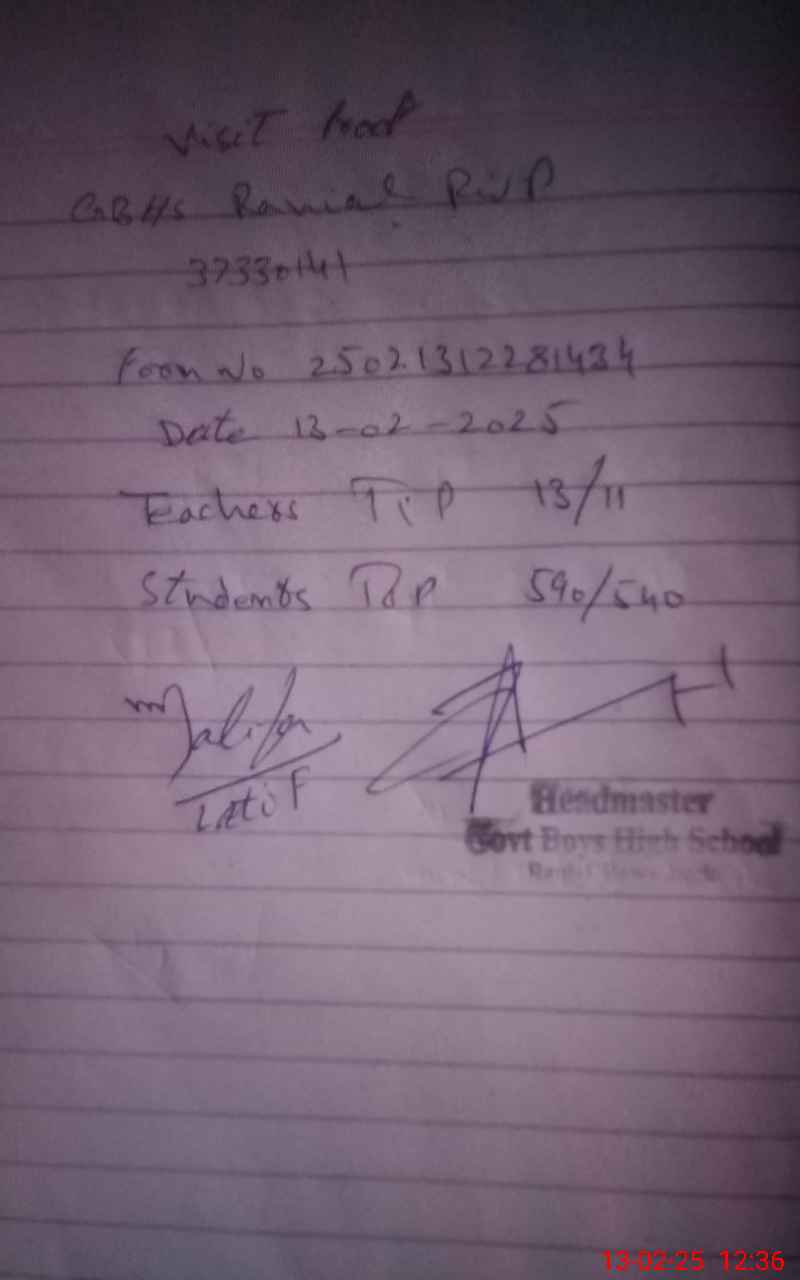 Visit Proof
GBHS Ranial RWP
37330141
Form No 2502.1312281434
Date 13-02-2025
Teachers T.P 13/11
Students T&P 590/540
Latif
Headmaster
Govt Boys High School
13-02-25 12:36